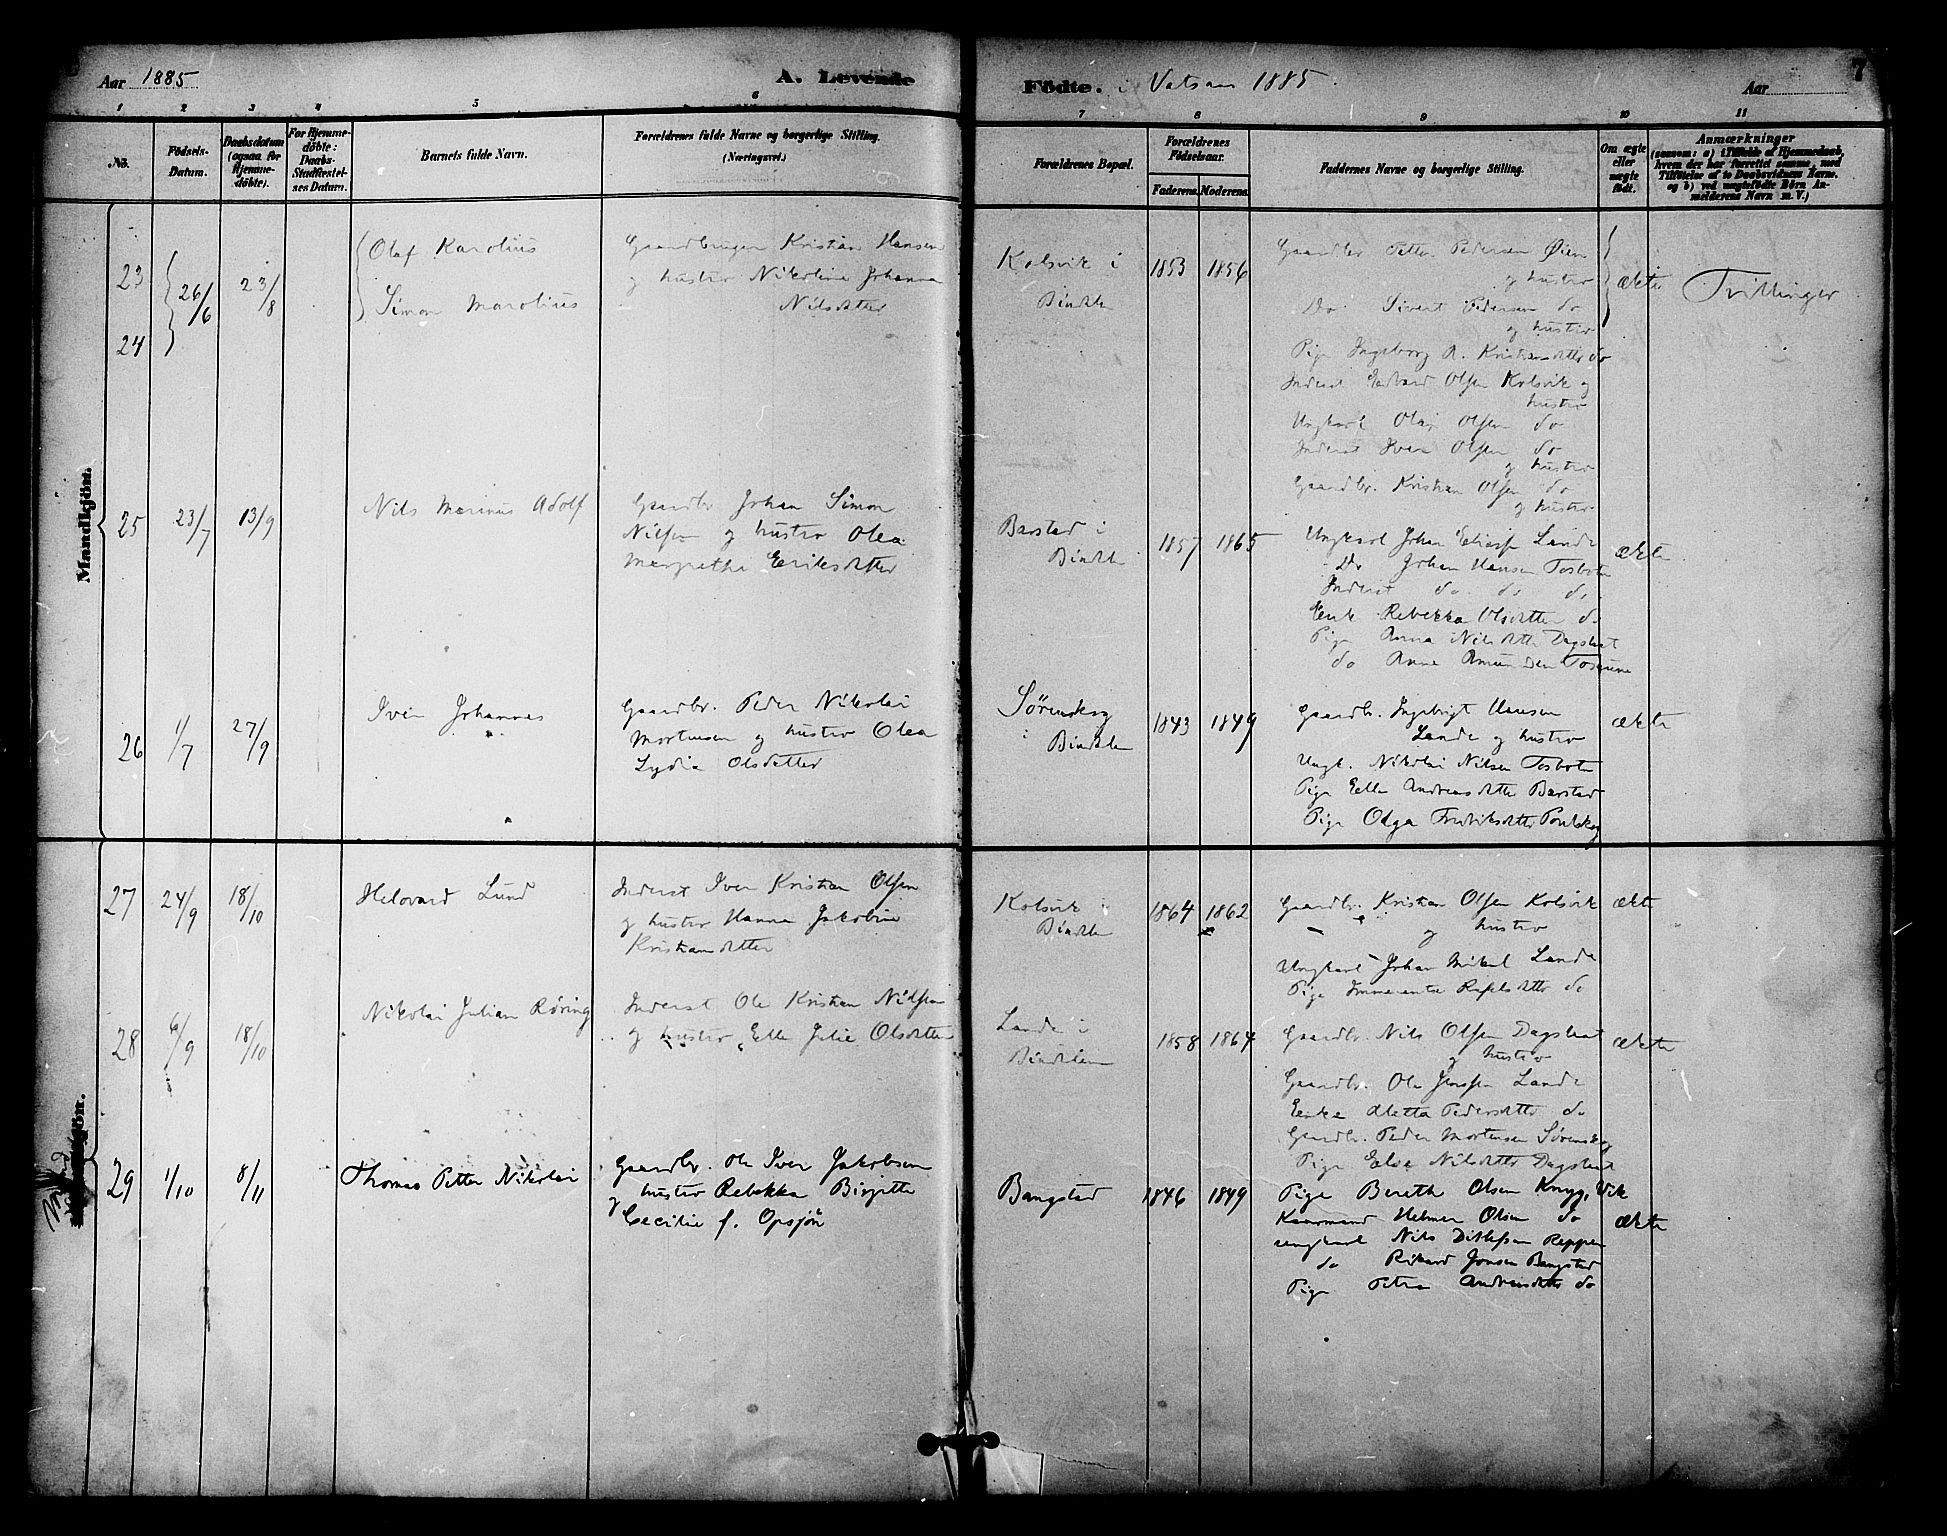 Aar 1885
A. Levende
Födte. i Vatsaas 1885.
Aar
7
1 2 3 4 5 6 7 8 9 10 11
No.
Födsels-
Datum.
Daabsdatum
(ogsaa for
Hjemme-
döbte).
For Hjemme-
döbte:
Daabs-
Stadfæstel-
ses Datum.
Barnets fulde Navn.
Forældrenes fulde Navne og borgerlige Stilling.
(Næringsvei.)
Forældrenes Bopæl.
Forældrenes
Födselsaar.
Faderens. Moderens.
Faddernes Navne og borgerlige Stilling.
Om ægte
eller
uægte
födt.
Anmærkninger
(saasom: a) i Tilfælde af Hjemmedaab,
hvem der har forrettet samme, med
Tilföielse af to Daabsvidners Navne,
og b) ved uægtefödte Börn An-
melderens Navn m. V.)
Mandkjön.
23
24
26/6
23/8
Olaf Karolius
Simon Marolius
Gaardbruger Kristian Hansen
og hustro Nikoline Johanna
Nilsdatter
Kolsvik i
Bindalen
1853 1856
Gaardbr Petter Pedersen Øien
og hustro
Do Sivert Pedersen do
og hustro
Pige Ingeborg A. Kristiansdatter do
Inderst Edvard Olsen Kolsvik og
hustro
Ungkarl Olaj Olsen do
Inderst Iver Olsen do
og hustro
Gaardbr. Kristian Olsen do
og hustro
ækte
Tvillinger
25
23/7
13/9
Nils Marinus Adolf
Gaardbr Johan Simon
Nilsen og hustro Olea
Margrethe Eriksdatter
Barstad i
Bindalen
1857 1865
Ungkarl Johan Eliass Lande
Do Johan Hansen Tosboten
Inderst do do do
Enke Rebekka Olsdatter do
Pige Anna Nilsdatter Dagslaat
do Anne Amundsen
ækte
26
1/7
27/9
Iver Johannes
Gaardbr. Peder Nikolai
Mortensen og hustro Olea
Lydia Olsdatter
Sørenskog
i Bindalen
1843 1849
Gaardbr. Ingebrigt Hansen
Lande og hustro
Ungk. Nikolai Nilsen Tosboten
Pige Ellen Andreasdatter Barstad
Pige Olga Fredriksdatter Poulskog
ækte
27
24/9
18/10
Helovard Lund
Inderst Iver Kristian Olsen
og hustro Hanna Jakobine
Kristiansdatter
Kolsvik i
Bindalen
1864 1862
Gaardbr. Kristian Olsen Kolsvik
og hustro
Ungkarl Johan Mikal Lande
Pige Immerentse Rafelsdatter do
ækte
28
6/9
18/10
Nikolai Julian Røring
Inderst Ole Kristian Nilsen
og hustro Ellen Julie Olsdatter
Lande i
Bindalen
1858 1864
Gaardbr. Nils Olsen Dagslaat
og hustro
Gaardbr. Ole Jensen Lande
Enke Aletta Pedersdatter do
Gaardbr. Peder Mortensen Sørenskog
Pige Else Nilsdatter Dagslaat
ækte
Mand
kjön.
29
1/10
8/11
Thomas Petter Nikolai
Gaardbr. Ole Iver Jakobsen
og hustro Rebekka Birgitte
Cecilie f. Opsjön
Bangstad
1846 1849
Pige Bereth Olsen Kryg. Vik
Kaarmand Helmer Olsen do
ungkarl Nils Ditlefsen Reppen
do Rikard Jonsen Bangstad
Pige Petra Andreasdatter do
ækte